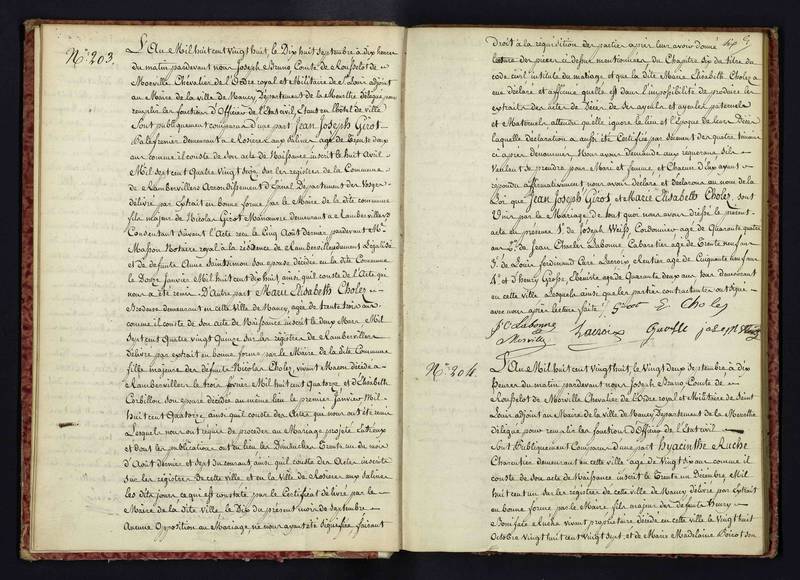 N.º 203.
L'An Mil huit cent vingt huit, le Dix huit septembre à dix heures
du matin pardevant nous Joseph Bruno Comte de Rousselot de
Morville Chevalier de l'Ordre royal et Militaire de St. Louis adjoint
au Maire de la ville de Nancy, Département de la Meurthe délégué pour
remplir les fonctions d'Officier de l'Etat civil, Etant en l'hôtel de ville
Sont publiquement comparus d'une part Jean Joseph Girot
demeurant à Rosieres aux Salines agé de Trente deux
ans comme il conste de son acte de Naissance inscrit le huit Avril
Mil sept cent Quatre Vingt Seize sur les registres de la Commune
de Rambervillers Arrondissement d'Epinal Département des Vosges
délivré par Extrait en bonne forme par le Maire de la dite commune
fils majeur de Nicolas Girot Manœuvre demeurant à Rambervillers
Consentant suivant l'Acte reçu le Cinq Août dernier pardevant Me.
Masson Notaire royal à la résidence de Rambervillers dument légalisé
et de défunte Anne Saintsimon son epouse décédée en la dite Commune
le Douze Janvier Mil huit cent dix huit ainsi qu'il conste de l'Acte qui
nous a été remis. D'autre part Marie Elisabeth Cholez
demeurant en cette Ville de Nancy, agée de trente trois ans
comme il conste de son acte de Naissance inscrit le deux Mars, Mil
sept cent quatre vingt Quinze sur les registres de Rambervillers
délivré par extrait en bonne forme par le Maire de la dite Commune
fille majeure des défunts Nicolas Cholez, vivant Maçon décédé à
Rambervillers le trois fevrier Mil huit cent Quatorze et d'Elisabeth
Corbillon son epouse décédée au même lieu le premier Janvier Mil
huit cent Quatorze, ainsi qu'il conste des Actes qui nous ont été remis
Lesquels nous ont requis de procéder au Mariage projeté entr'eux
et dont les publications ont eu lieu les Dimanches Trente un du mois
d'Août dernier et sept du courant ainsi qu'il conste des Actes inscrits
sur les registres de cette ville et en la Ville de Rosieres aux salines
les dits jours, ce qui est constaté par le Certificat délivré par le
Maire de la dite Ville, le Dix du présent mois de septembre
Aucune Opposition au Mariage, ne nous ayant été signifiée faisant
droit à la réquisition des parties après leur avoir donné
lecture des pièces ci dessus mentionnées du Chapitre six du titre du
code civil intitulé du mariage et que la dite Marie Elisabeth Cholez a
eue déclaré et affirmé qu'elle est dans l'impossibilité de produire les
extraits des actes de Décès de ses ayeuls et ayeules paternels
et Maternels attendu qu'elle ignore le lieu et l'époque de leur Décès
laquelle déclaration a aussi été Certifiée par serment des quatre témoins
ci après dénommés. Nous avons demandé aux requérans s'ils
veulent se prendre pour Mari et femme, et Chacun d'eux ayant
repondu affirmativement nous avons déclaré et declarons au nom de la
Loi que Jean Joseph Girot et Marie Elisabeth Cholez, sont
Unis par le Mariage de tout quoi nous avons dressé le present
acte en presence 1.º de Joseph Weiss, Cordonnier agé de Quarante quatre
ans 2.º de Jean Charles Labonne Cabaretier agé de Trente neuf ans
3.º de Louis Ferdinand Lacroix Rentier agé de Cinquante neuf ans
4.º et d'henry Gros Ebéniste agé de Quarante deux ans tous demeurant
en cette ville Lesquels ainsi que les parties contractantes ont signé
avec nous après lecture faite. Girot E Cholez
JC Labonne Lacroix joseph Weis
Morville
N.º 204.
L'An Mil huit cent vingt huit, le vingt deux septembre à dix
heures du matin pardevant nous Joseph Bruno Comte de
Rousselot de Morville Chevalier de l'Ordre royal et Militaire de Saint
Louis adjoint au Maire de la ville de Nancy Département de la Meurthe
délégué pour remplir les fonctions d'Officier de l'Etat civil
Sont Publiquement Comparus d'une part hyacinthe Ruche
demeurant en cette ville agé de Vingt six ans comme il
conste de son acte de Naissance inscrit le Trente un Décembre Mil
huit cent un sur les registres de cette ville de Nancy délivré par Extrait
en bonne forme par le Maire fils majeur des défunts Henry
Ruche vivant propriétaire décédé en cette ville le Vingt huit
Octobre Vingt huit cent Vingt sept, et de Marie Madelaine Poirot son